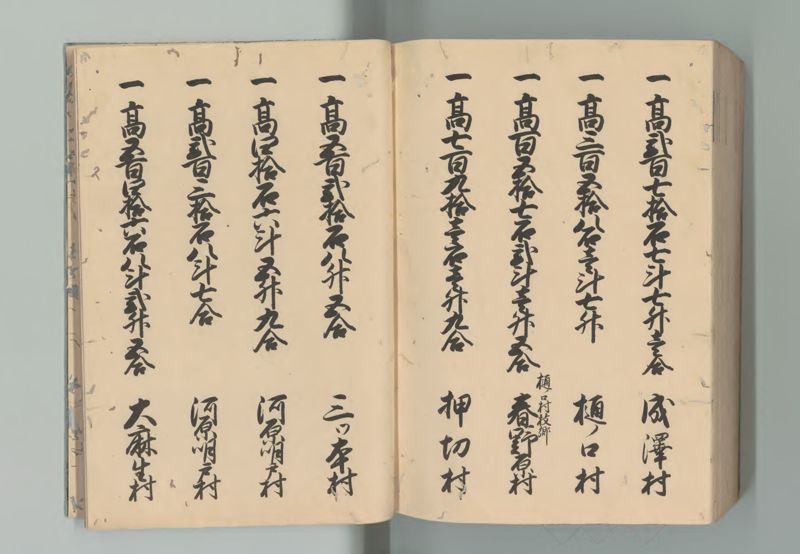 一高弐百七拾石七斗七升壱合 成澤村
一高三百五拾八石壱斗七升 樋ノ口村
一高百五拾七石弐斗壱升五合 樋ノ口村枝郷 春野原村
一高七百九拾壱石壱升九合 押切村
一高五百弐拾石八升五合 三ツ本村
一高四拾石六斗五升九合 河原明戸村
一高弐百三拾石八斗七合 河原明戸村
一高五百四拾六石八斗弐升五合 大麻生村